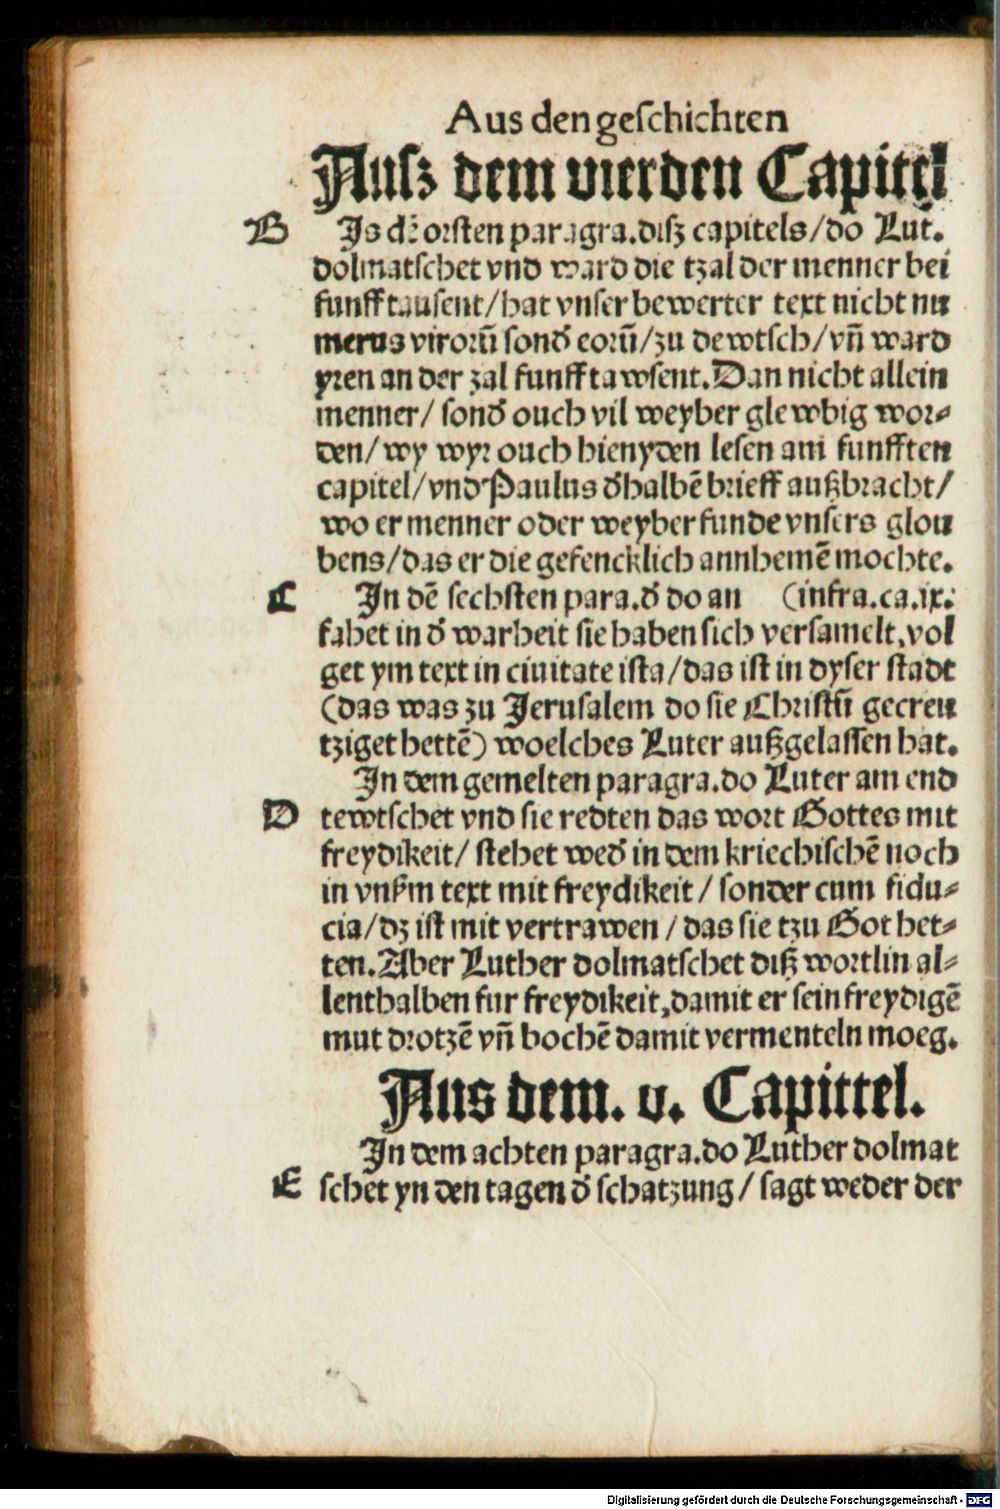 Aus den geſchichten
Auſz dem vierden Capittel
B Js d orſten paragra.diſz capitels/do Lut.
dolmatſchet vnd ward die tzal der menner bei
funfftauſent/hat vnſer bewerter text nicht nu
merus viroꝛū ſond̕ eoꝛū/zu dewtſch/vn̄ ward
yren an der zal funfftawſent.Dan nicht allein
menner/ ſond̕ ouch vil weyber glewbig woꝛ⸗
den/ wy wyꝛ ouch hienyden leſen am funfften
capitel/vnd Paulus d̕halbē brieff außbracht/
wo er menner oder weyber funde vnſers glou
bens/das er die gefencklich annhemē mochte.
C Jn dē ſechſten para.d̕ do an (infra.ca.ix.
fahet in d̕ warheit ſie haben ſich verſamelt,vol
get ym text in ciuitate iſta/das iſt in dyſer ſtadt
(das was zu Jeruſalem do ſie Chriſtū gecreu
tziget hettē) woelches Luter außgelaſſen hat.
Jn dem gemelten paragra.do Luter am end
D tewtſchet vnd ſie redten das woꝛt Gottes mit
freydikeit/ ſtehet wed̕ in dem kriechiſchē noch
in vnſ̕m text mit freydikeit / ſonder cum fidu⸗
cia/dz iſt mit vertrawen / das ſie tzu Got het⸗
ten.Aber Luther dolmatſchet diß woꝛtlin al⸗
lenthalben fur freydikeit,damit er ſein freydigē
mut dꝛotzē vn̄ bochē damit vermenteln moeg.
Aus dem. v. Capittel.
Jn dem achten paragra.do Luther dolmat
E ſchet yn den tagen d̕ ſchatzung / ſagt weder der
Digitalisierung gefördert durch die Deutsche Forschungsgemeinschaft - DFG